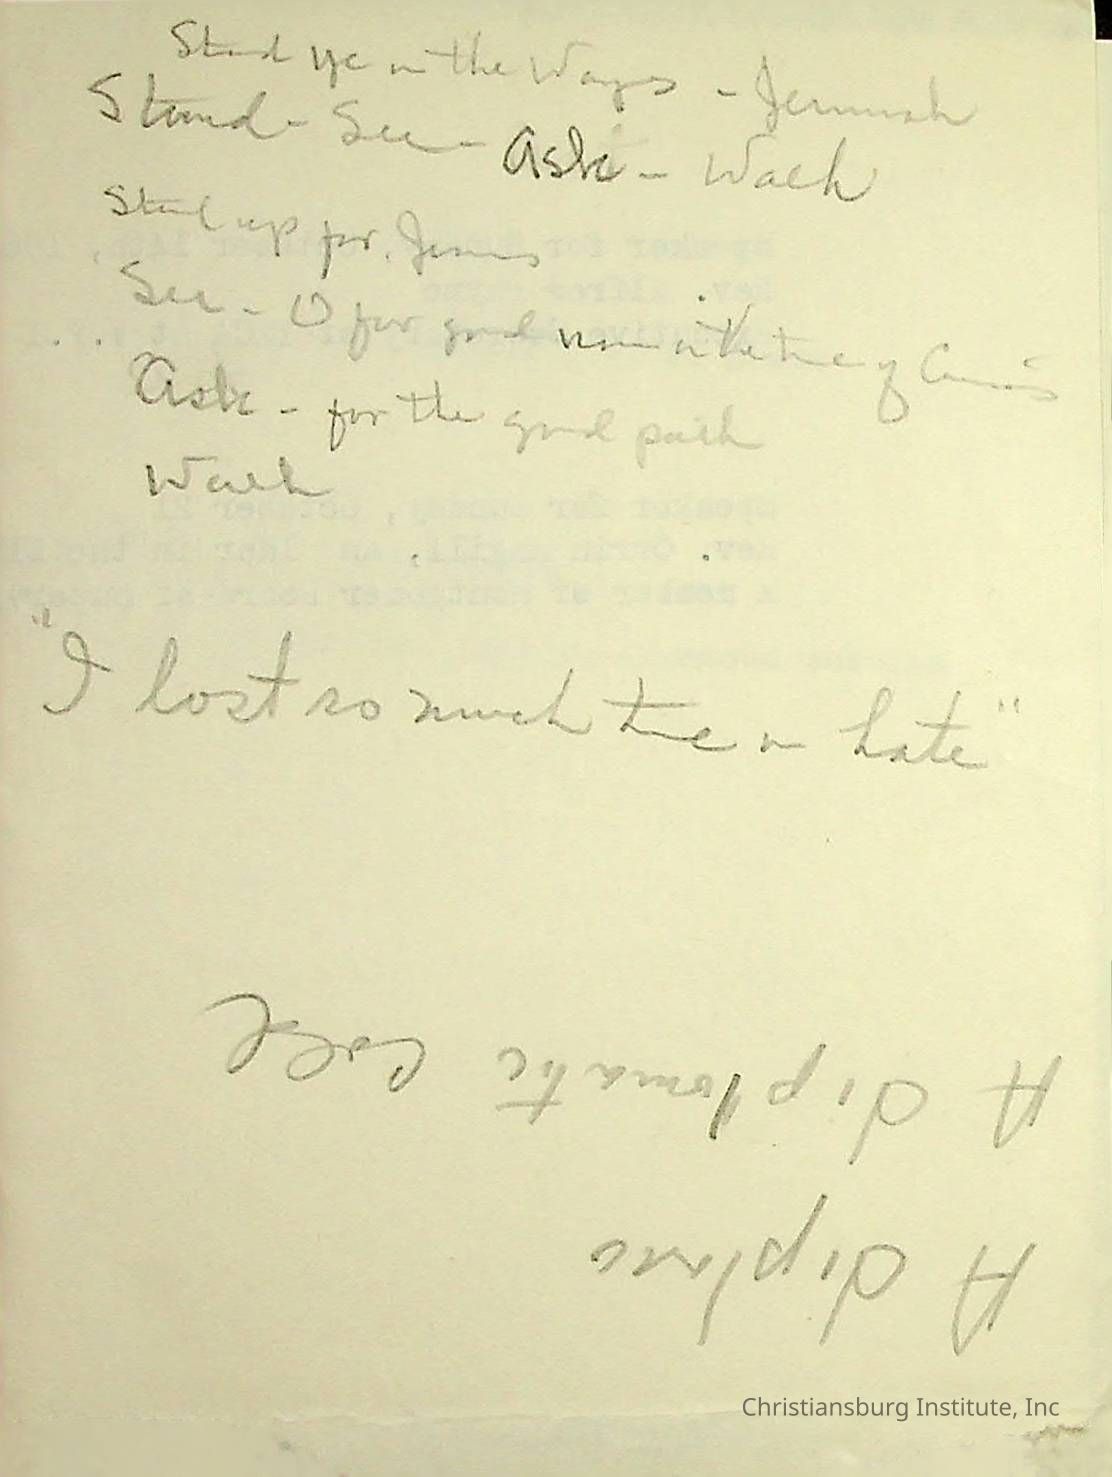 Stand ye in the Ways - Jeremiah
Stand - See - Ask - Walk
Stand up for Jesus
See - O for good in the time of Crisis
Ask - for the good path
Walk
"I lost so much time in hate"
A diplomatic
A diploma
Christiansburg Institute, Inc